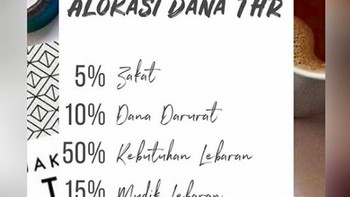 ALOKASI DANA THR
5% Zakat
10% Dana Darurat
50% Kebutuhan Lebaran
15% Mudik Lebaran
AK
T